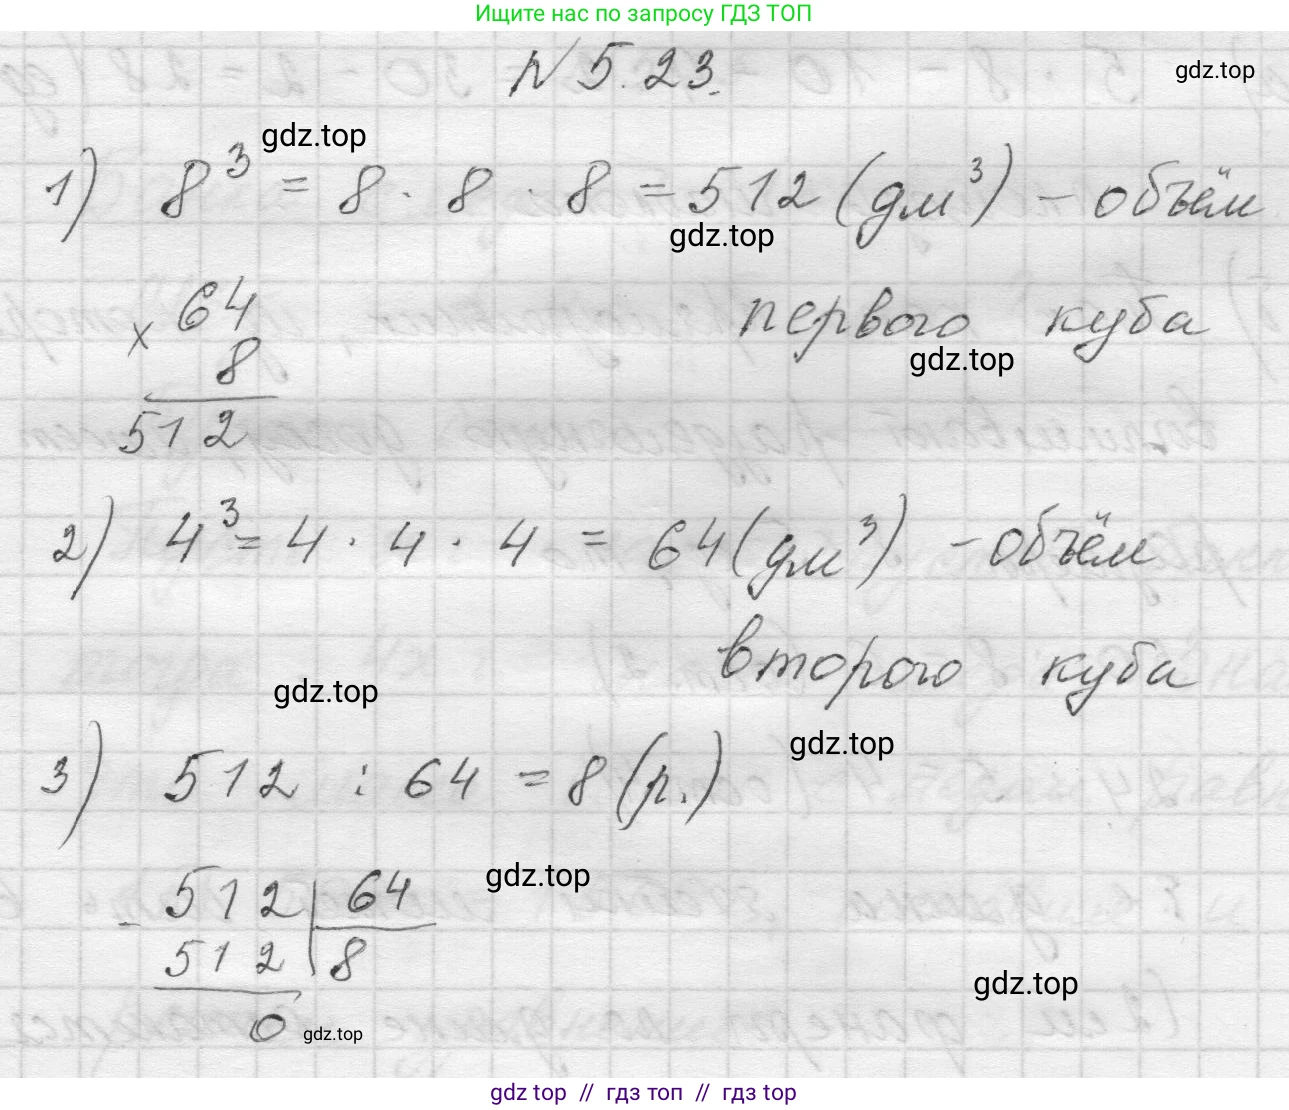 Ищите нас по запросу ГДЗ ТОП
№ 5.23.
gdz.top
gdz.top
1) 8³ = 8 · 8 · 8 = 512 (дм³) - объём
gdz.top
первого куба
gdz.top
× 64
8
512
2) 4³ = 4 · 4 · 4 = 64 (дм³) - объём
второго куба
gdz.top
gdz.top
3) 512 : 64 = 8 (р.)
gdz.top
- 512 | 64
512 | 8
0
gdz.top
gdz.top
gdz top // гдз топ // gdz top